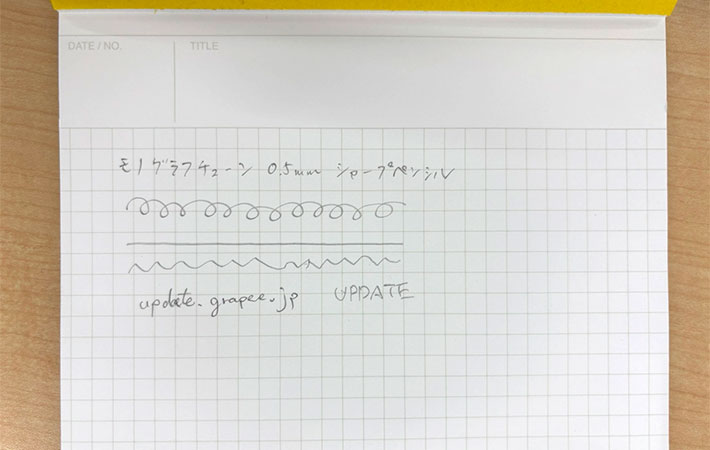 DATE / NO. TITLE
モノグラフチューン 0.5mm シャープペンシル
update.grapee.jp UPDATE